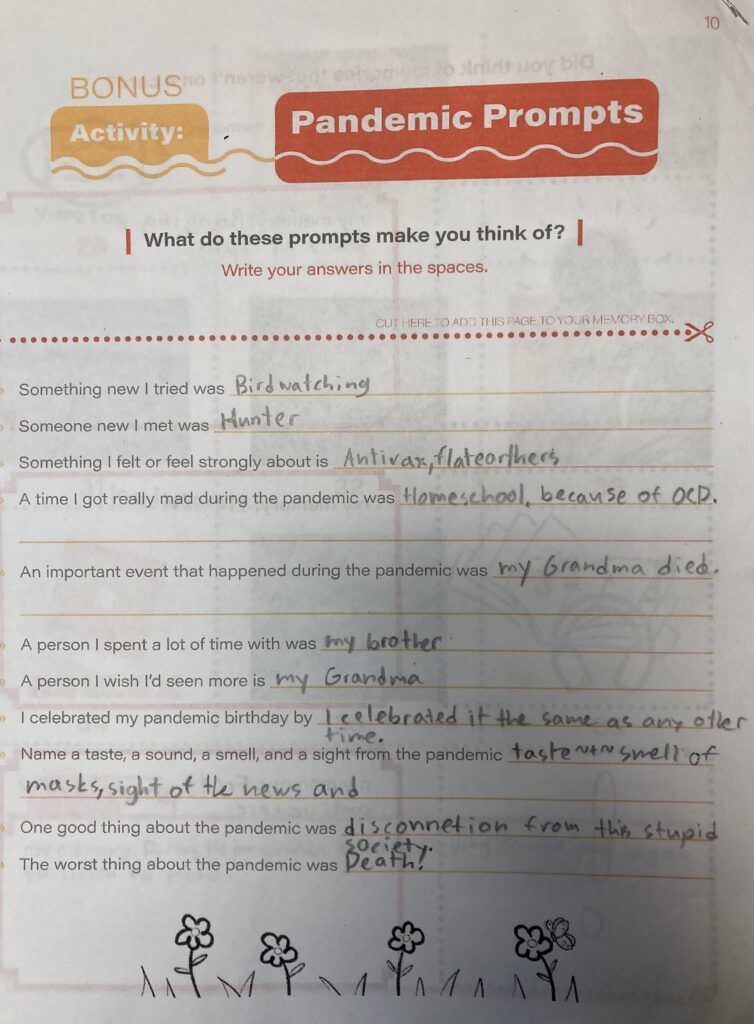 10
BONUS
Activity:
Pandemic Prompts
What do these prompts make you think of?
Write your answers in the spaces.
CUT HERE TO ADD THIS PAGE TO YOUR MEMORY BOX.
Something new I tried was Birdwatching
Someone new I met was Hunter
Something I felt or feel strongly about is Antivax, flatearthers
A time I got really mad during the pandemic was Homeschool, because of OCD.
An important event that happened during the pandemic was my Grandma died.
A person I spent a lot of time with was my brother
A person I wish I'd seen more is my Grandma
I celebrated my pandemic birthday by I celebrated it the same as any other
time.
Name a taste, a sound, a smell, and a sight from the pandemic taste smell of
masks, sight of the news and
One good thing about the pandemic was disconnetion from this stupid
society.
The worst thing about the pandemic was Death!